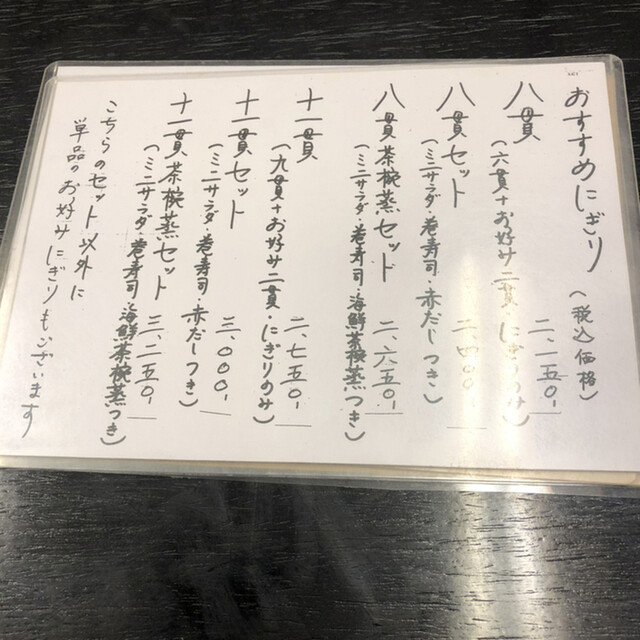 おすすめにぎり（税込価格）
八貫 二、一五〇-
（六貫+お好み二貫・にぎりのみ）
八貫セット 二、四〇〇-
（ミニサラダ・巻寿司・赤だしつき）
八貫茶椀蒸セット 二、六五〇-
（ミニサラダ・巻寿司・海鮮茶椀蒸つき）
十一貫 二、七五〇-
（九貫+お好み二貫・にぎりのみ）
十一貫セット 三、〇〇〇-
（ミニサラダ・巻寿司・赤だしつき）
十一貫茶椀蒸セット 三、二五〇-
（ミニサラダ・巻寿司・海鮮茶椀蒸つき）
こちらのセット以外に
単品のお好みにぎりもございます